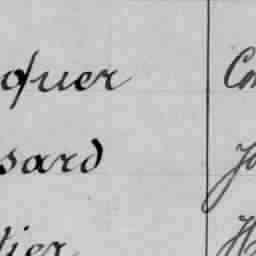 quer Co
sard Jo
tier H